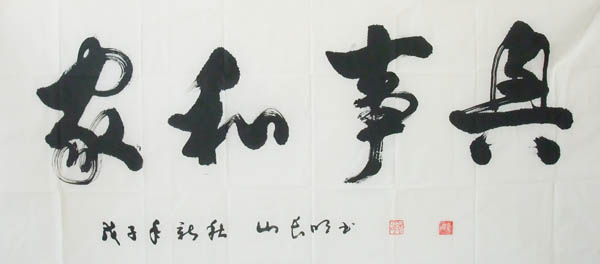 家和事興
戊子年新秋 山长明书